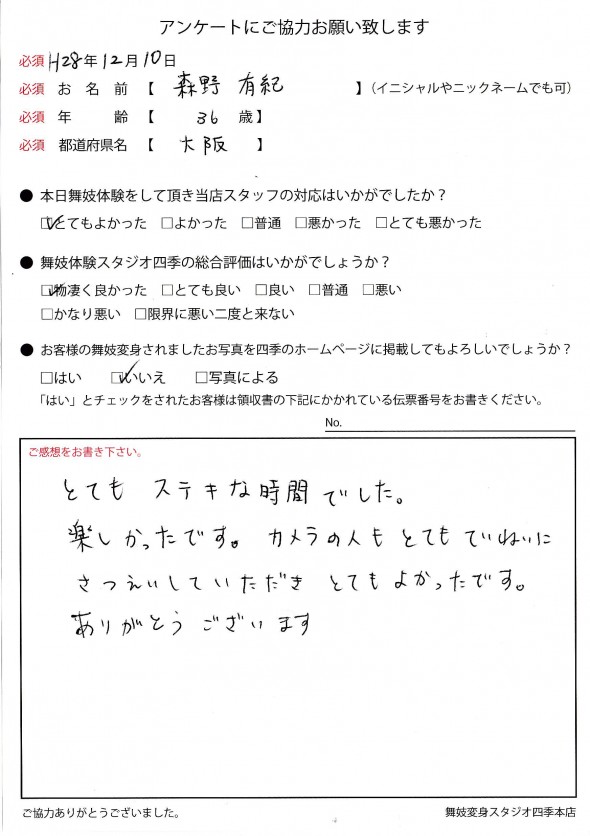 アンケートにご協力お願い致します
必須 H28年12月10日
必須 お名前【 森野 有紀 】（イニシャルやニックネームでも可）
必須 年齢【 36 歳】
必須 都道府県名【 大阪 】
● 本日舞妓体験をして頂き当店スタッフの対応はいかがでしたか？
☑とてもよかった □よかった □普通 □悪かった □とても悪かった
● 舞妓体験スタジオ四季の総合評価はいかがでしょうか？
☑物凄く良かった □とても良い □良い □普通 □悪い
□かなり悪い □限界に悪い二度と来ない
● お客様の舞妓変身されましたお写真を四季のホームページに掲載してもよろしいでしょうか？
□はい ☑いいえ □写真による
「はい」とチェックをされたお客様は領収書の下記にかかれている伝票番号をお書きください。
No.
ご感想をお書き下さい。
とても ステキな時間でした。
楽しかったです。 カメラの人も とても ていねいに
さつえいしていただき とてもよかったです。
ありがとう ございます
ご協力ありがとうございました。
舞妓変身スタジオ四季本店